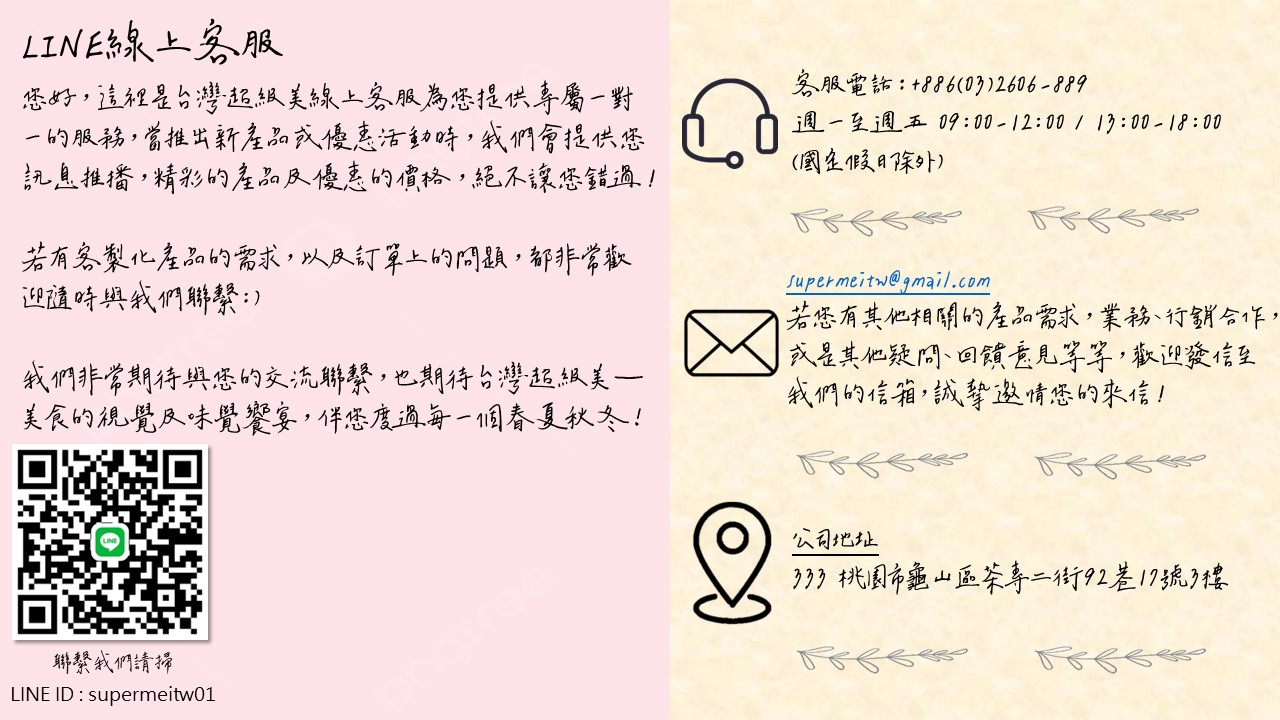 LINE線上客服
您好，這裡是台灣超級美線上客服為您提供專屬一對
一的服務，當推出新產品或優惠活動時，我們會提供您
訊息推播，精彩的產品及優惠的價格，絕不讓您錯過！
若有客製化產品的需求，以及訂單上的問題，都非常歡
迎隨時與我們聯繫:)
我們非常期待與您的交流聯繫，也期待台灣超級美—
美食的視覺及味覺饗宴，伴您度過每一個春夏秋冬！
LINE
聯繫我們請掃
LINE ID : supermeitw01
客服電話：+886(03)2606-889
週一至週五 09:00-12:00 / 13:00-18:00
(國定假日除外)
supermeitw@gmail.com
若您有其他相關的產品需求，業務、行銷合作，
或是其他疑問、回饋意見等等，歡迎發信至
我們的信箱，誠摯邀情您的來信！
公司地址
333 桃園市龜山區茶專二街92巷17號3樓
pngtree